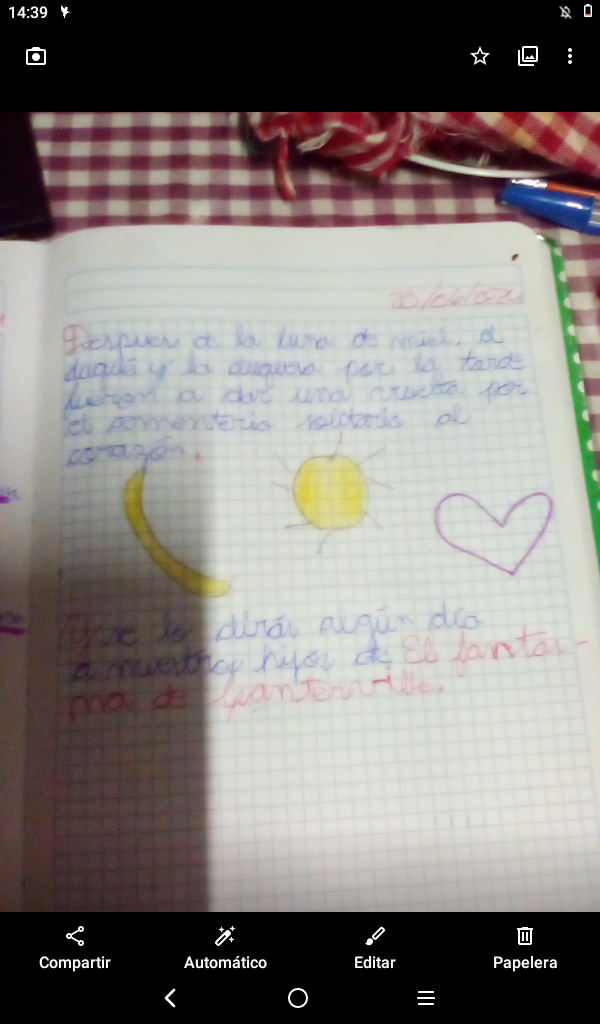 14:39
Después de la luna de miel. el
duque y la duquesa por la tarde
fueron a dar una vuelta por
el solitario al
corazón.
Y se lo dirás algún día
a nuestros hijos de El fantas-
ma de
Compartir
Automático
Editar
Papelera